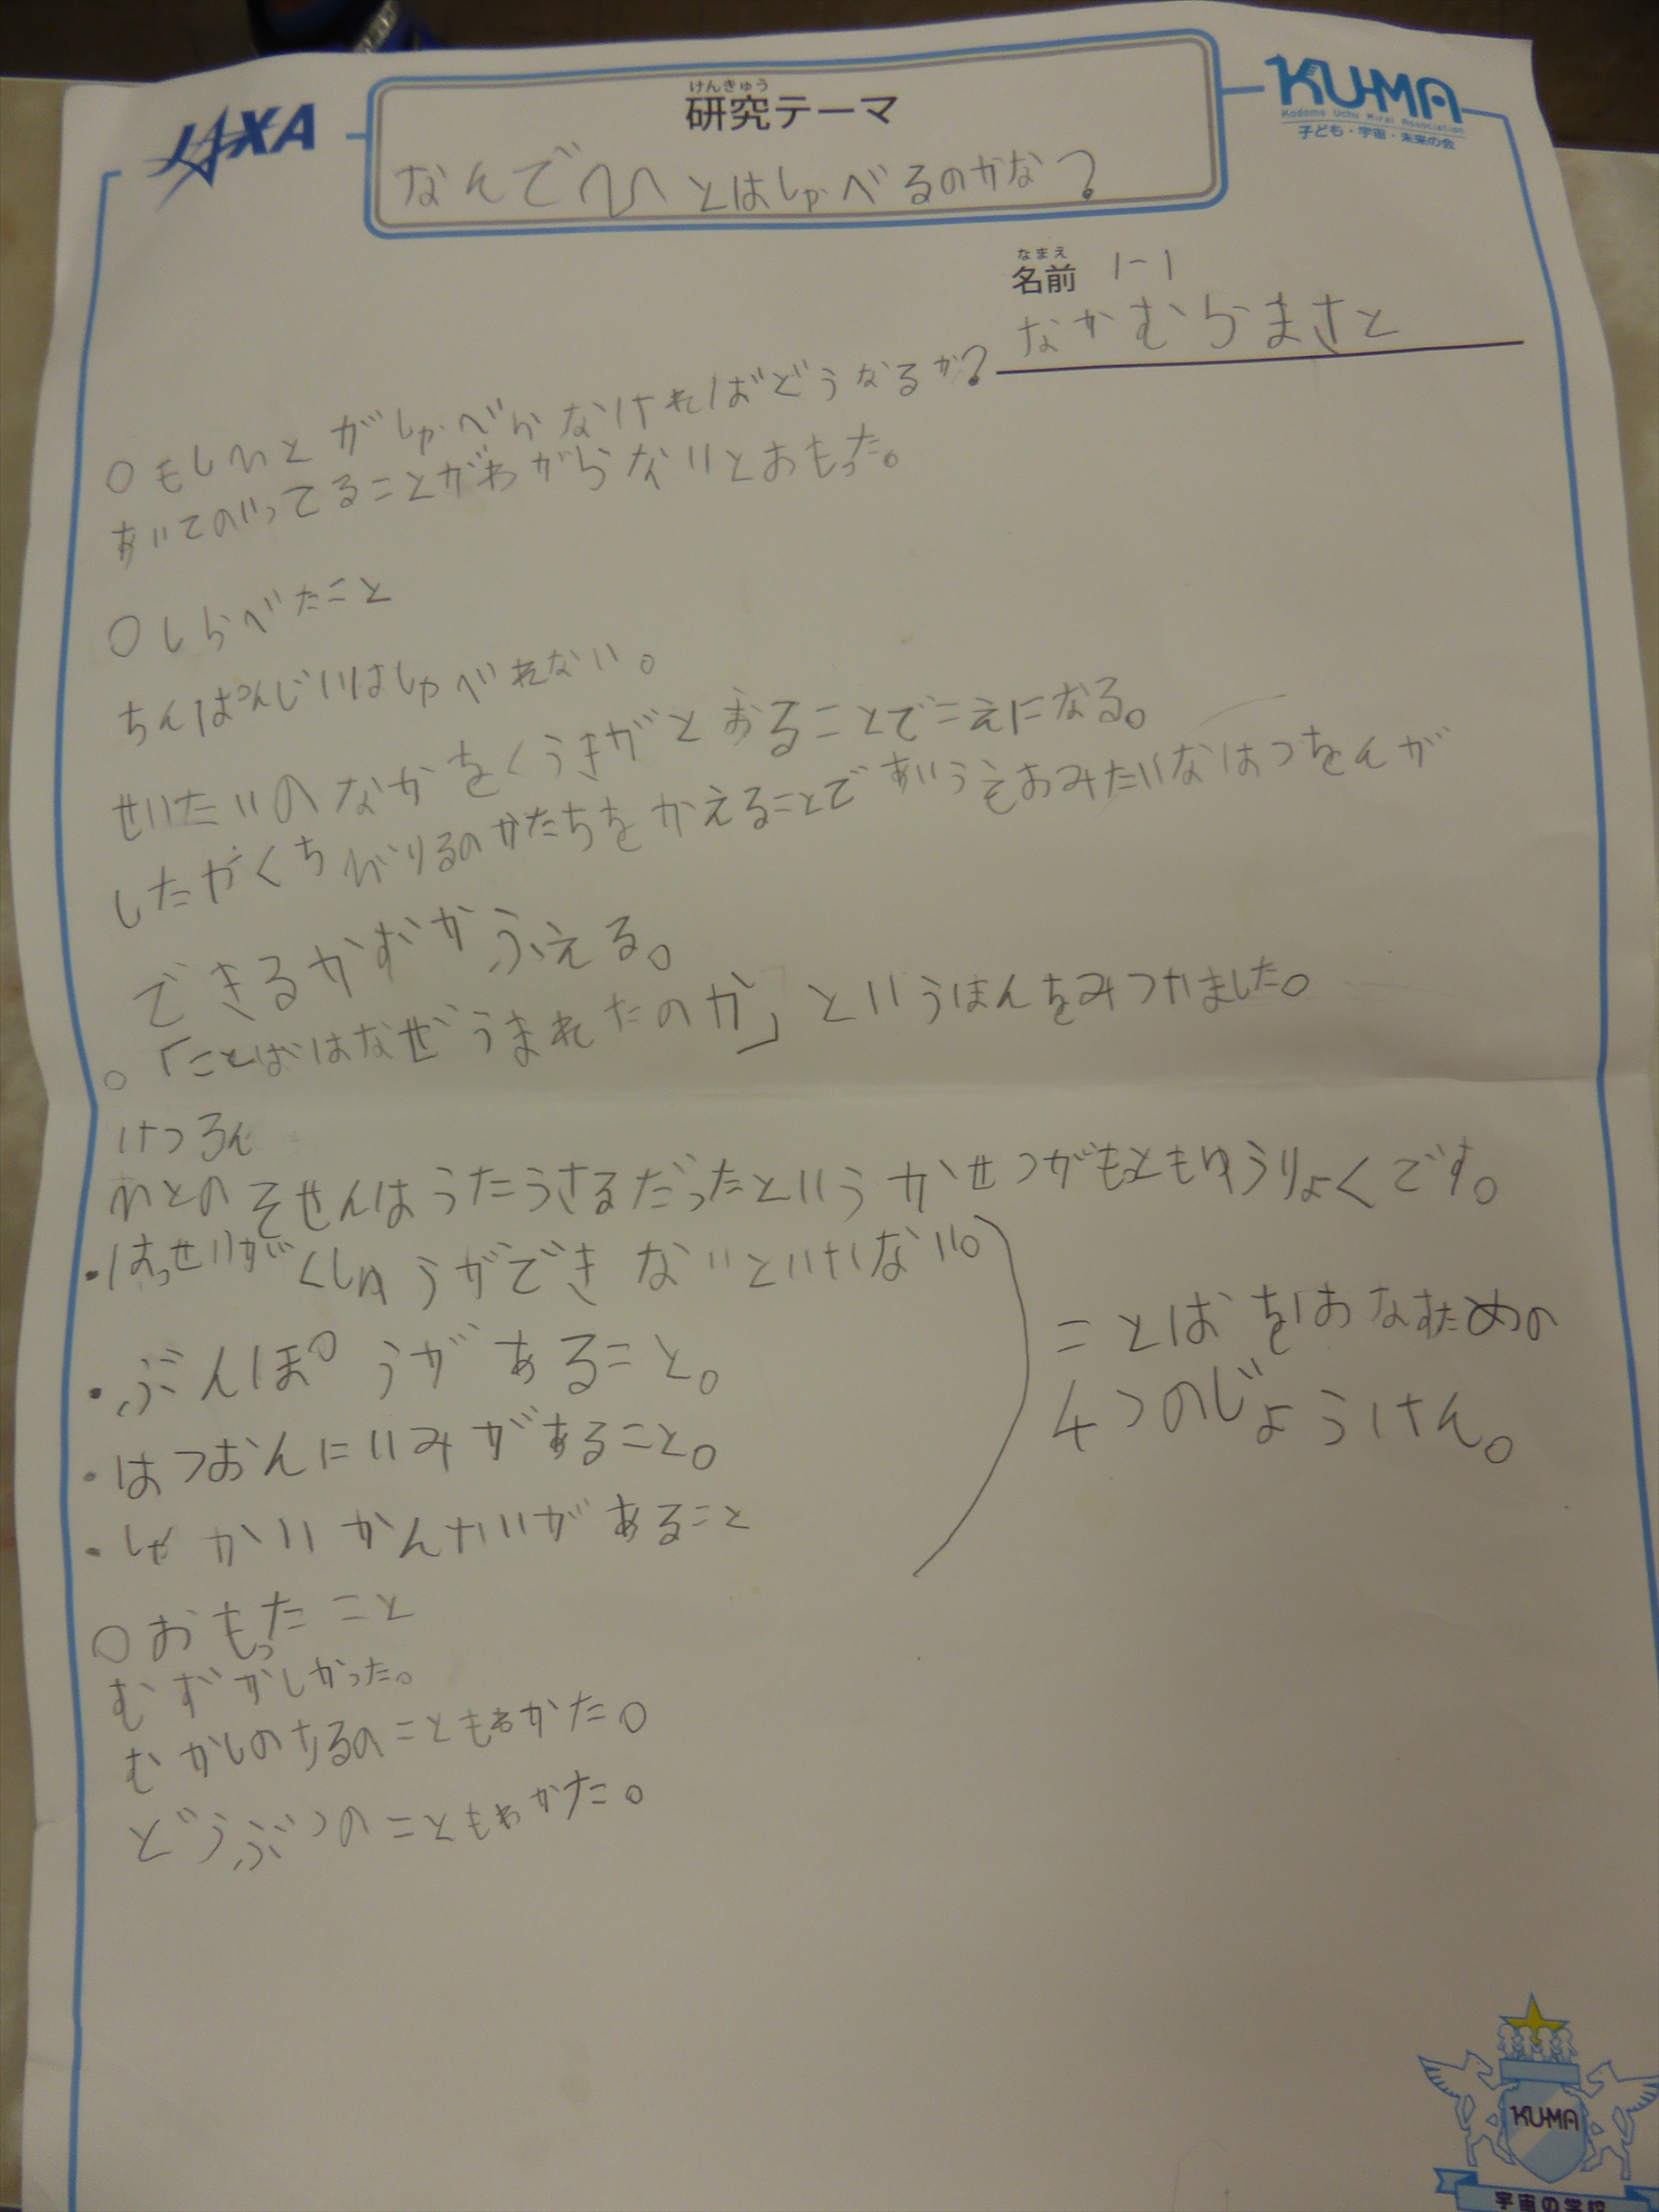 JAXA
けんきゅう
研究テーマ
KU-MA
Kodomo Uchu Mirai Association
子ども・宇宙・未来の会
なんでひとはしゃべるのかな?
なまえ
名前 1-1
なかむらまさと
○もしひとがしゃべらなければどうなるか?
あいてのいってることがわからないとおもった。
○しらべたこと
ちんぱんじいはしゃべれない。
せいたいのなかをくうきがとおることでこえになる。
したがくちびりるのかたちをかえることであいうえおみたいなはつをんが
できるかずがふえる。
○「ことばはなぜうまれたのか」というほんをみつけました。
けつろん
ひとのそせんはうたうさるだったというかせつがもっともゆうりょくです。
・はっせいがくしゅうができないといけない。
・ぶんぽうがあること。
・はつおんにいみがあること。
・しゃかいかんけいがあること
ことばをはなすための
4つのじょうけん。
○おもったこと
むずかしかった。
むかしのさるのこともわかた。
どうぶつのこともわかた。
KU-MA
宇宙の学校